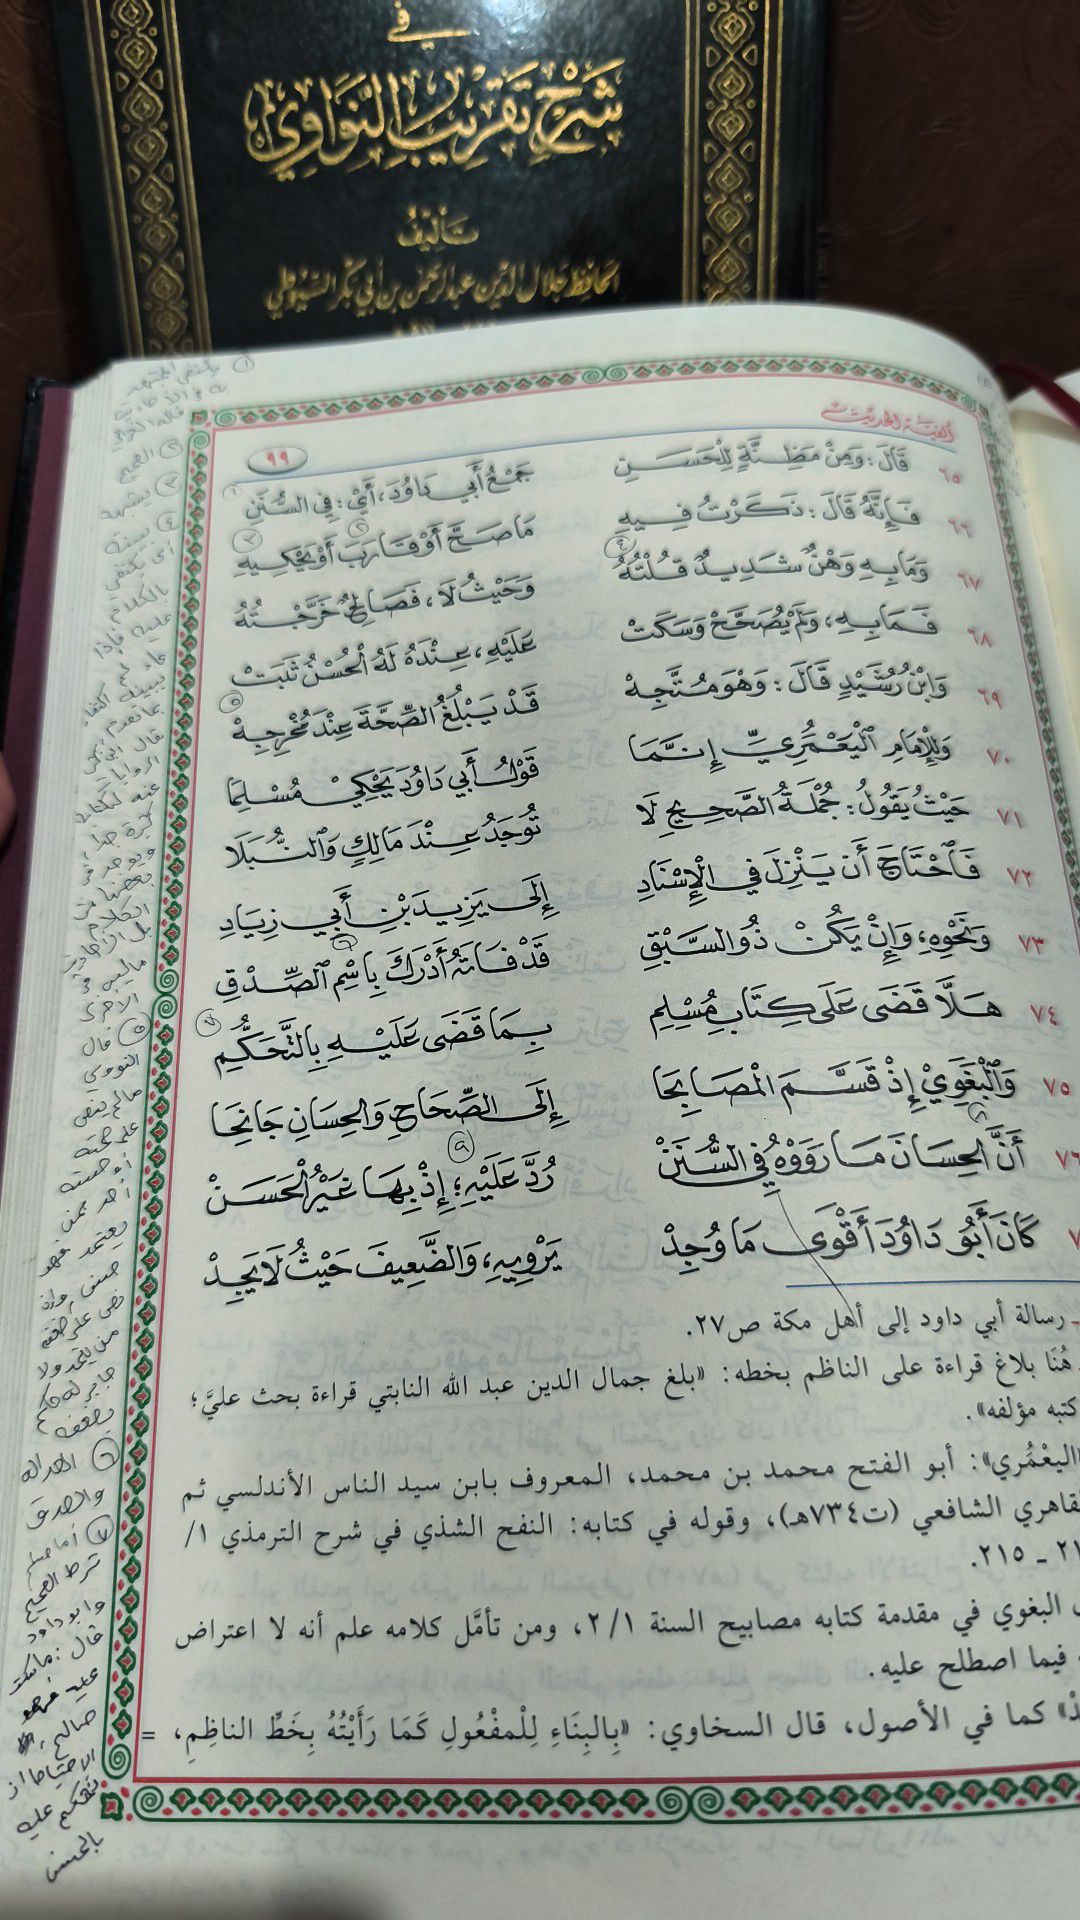 في
شَرْح تَقْرِيبِ النَّوَاوِي
تأليف
الحافظ جلال الدين عبد الرحمن بن أبي بكر السيوطي
ألفية الحديث
٩٩
٦٥ قَالَ: وَمِنْ مَظِنَّةٍ لِلْحَسَنِ جَمْعُ أَبِي دَاوُدَ، أَيْ: فِي السُّنَنِ
٦٦ فَإِنَّهُ قَالَ: ذَكَرْتُ فِيهِ مَا صَحَّ أَوْ قَارَبَ أَوْ يَحْكِيهِ
٦٧ وَمَا بِهِ وَهْنٌ شَدِيدٌ قُلْتُهُ وَحَيْثُ لَا، فَصَالِحٌ خَرَّجْتُهُ
٦٨ فَمَا بِهِ، وَلَمْ يُصَحَّحْ وَسَكَتْ عَلَيْهِ، عِنْدَهُ لَهُ الْحُسْنُ ثَبَتْ
٦٩ وَابْنُ رُشَيْدٍ قَالَ: وَهْوَ مُتَّجِهْ قَدْ يَبْلُغُ الصِّحَّةَ عِنْدَ مُخْرِجِهْ
٧٠ وَلِلْإِمَامِ الْيَعْمُرِيِّ إِنَّمَا قَوْلُ أَبِي دَاوُدَ يَحْكِي مُسْلِمَا
٧١ حَيْثُ يَقُولُ: جُمْلَةُ الصَّحِيحِ لَا تُوجَدُ عِنْدَ مَالِكٍ وَالنُّبَلَا
٧٢ فَاحْتَاجَ أَنْ يَنْزِلَ فِي الْإِسْنَادِ إِلَى يَزِيدَ بْنِ أَبِي زِيَادِ
٧٣ وَنَحْوِهِ، وَإِنْ يَكُنْ ذُو السَّبْقِ قَدْ فَاتَهُ أَدْرَكَ بِاسْمِ الصِّدْقِ
٧٤ هَلَّا قَضَى عَلَى كِتَابِ مُسْلِمِ بِمَا قَضَى عَلَيْهِ بِالتَّحَكُّمِ
٧٥ وَالْبَغَوِيْ إِذْ قَسَّمَ الْمَصَابِحَا إِلَى الصِّحَاحِ وَالْحِسَانِ جَانِحَا
٧٦ أَنَّ الْحِسَانَ مَا رَوَوْهُ فِي السُّنَنْ رُدَّ عَلَيْهِ؛ إِذْ بِهَا غَيْرُ الْحَسَنْ
كَانَ أَبُو دَاوُدَ أَقْوَى مَا وُجِدْ يَرْوِيهِ، وَالضَّعِيفَ حَيْثُ لَا يَجِدْ
رسالة أبي داود إلى أهل مكة ص٢٧.
هُنَا بلاغ قراءة على الناظم بخطه: «بلغ جمال الدين عبد الله النابتي قراءة بحث عليَّ؛
كتبه مؤلفه».
«اليعْمُري»: أبو الفتح محمد بن محمد، المعروف بابن سيد الناس الأندلسي ثم
القاهري الشافعي (ت٧٣٤هـ)، وقوله في كتابه: النفح الشذي في شرح الترمذي ١/
ـ ٢١٥.
البغوي في مقدمة كتابه مصابيح السنة ٢/١، ومن تأمَّل كلامه علم أنه لا اعتراض
فيما اصطلح عليه.
كما في الأصول، قال السخاوي: «بِالبِنَاءِ لِلْمفْعُولِ كَمَا رَأَيْتُهُ بِخَطِّ الناظِمِ، =
٢ الصحيح
٣ يشبهه
٤ بينته
الكلام
عليه
قال ابن حجر
٥ قال
النووي
٦ العدالة
والصدق
٧ أما مسلم
شرط الصحيح
وأبو داود
قال: ما سكت
عليه فهو
صالح،
الاحتياط أن
نحكم عليه
بالحسن